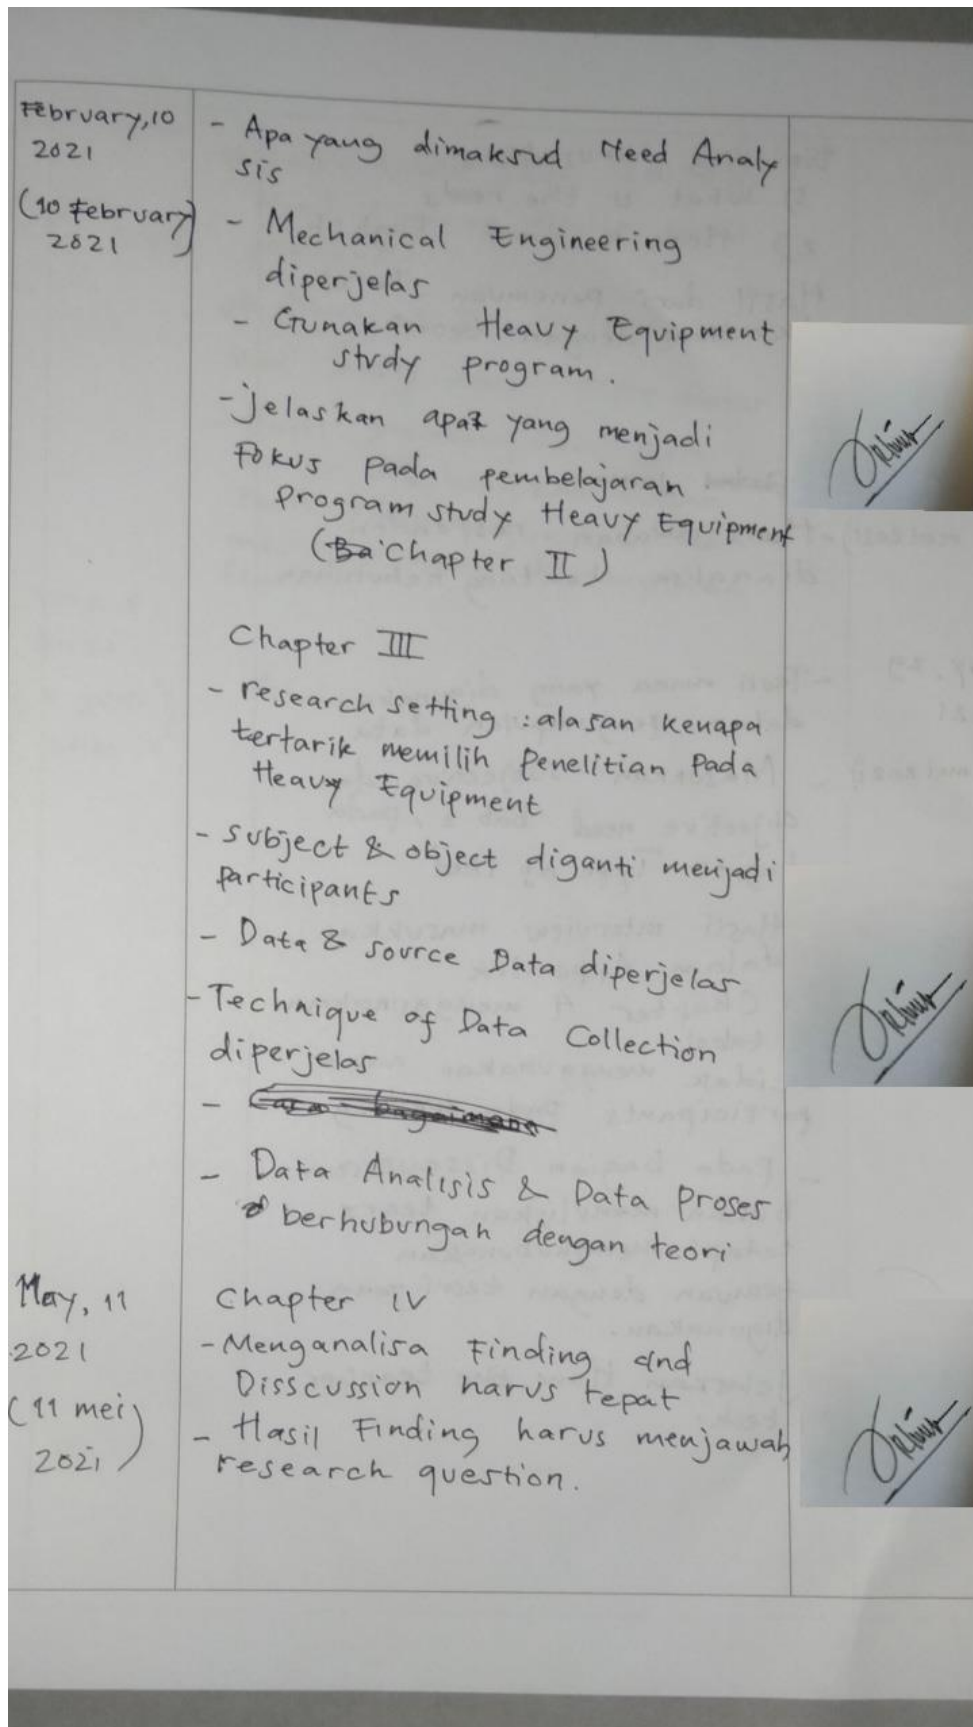 February, 10
2021
(10 February
2021)
- Apa yang dimaksud Need Analy
sis
- Mechanical Engineering
diperjelas
- Gunakan Heavy Equipment
study program.
- jelaskan apa yang menjadi
Fokus pada pembelajaran
program study Heavy Equipment
(Chapter II)
Chapter III
- research setting : alasan kenapa
tertarik memilih Penelitian Pada
Heavy Equipment
- subject & object diganti menjadi
participants
- Data & source Data diperjelas
- Technique of Data Collection
diperjelas
- Cara bagaimana
- Data Analisis & Data Proses
berhubungan dengan teori
May, 11
2021
(11 mei
2021)
Chapter IV
- Menganalisa Finding and
Disscussion harus tepat
- Hasil Finding harus menjawab
research question.